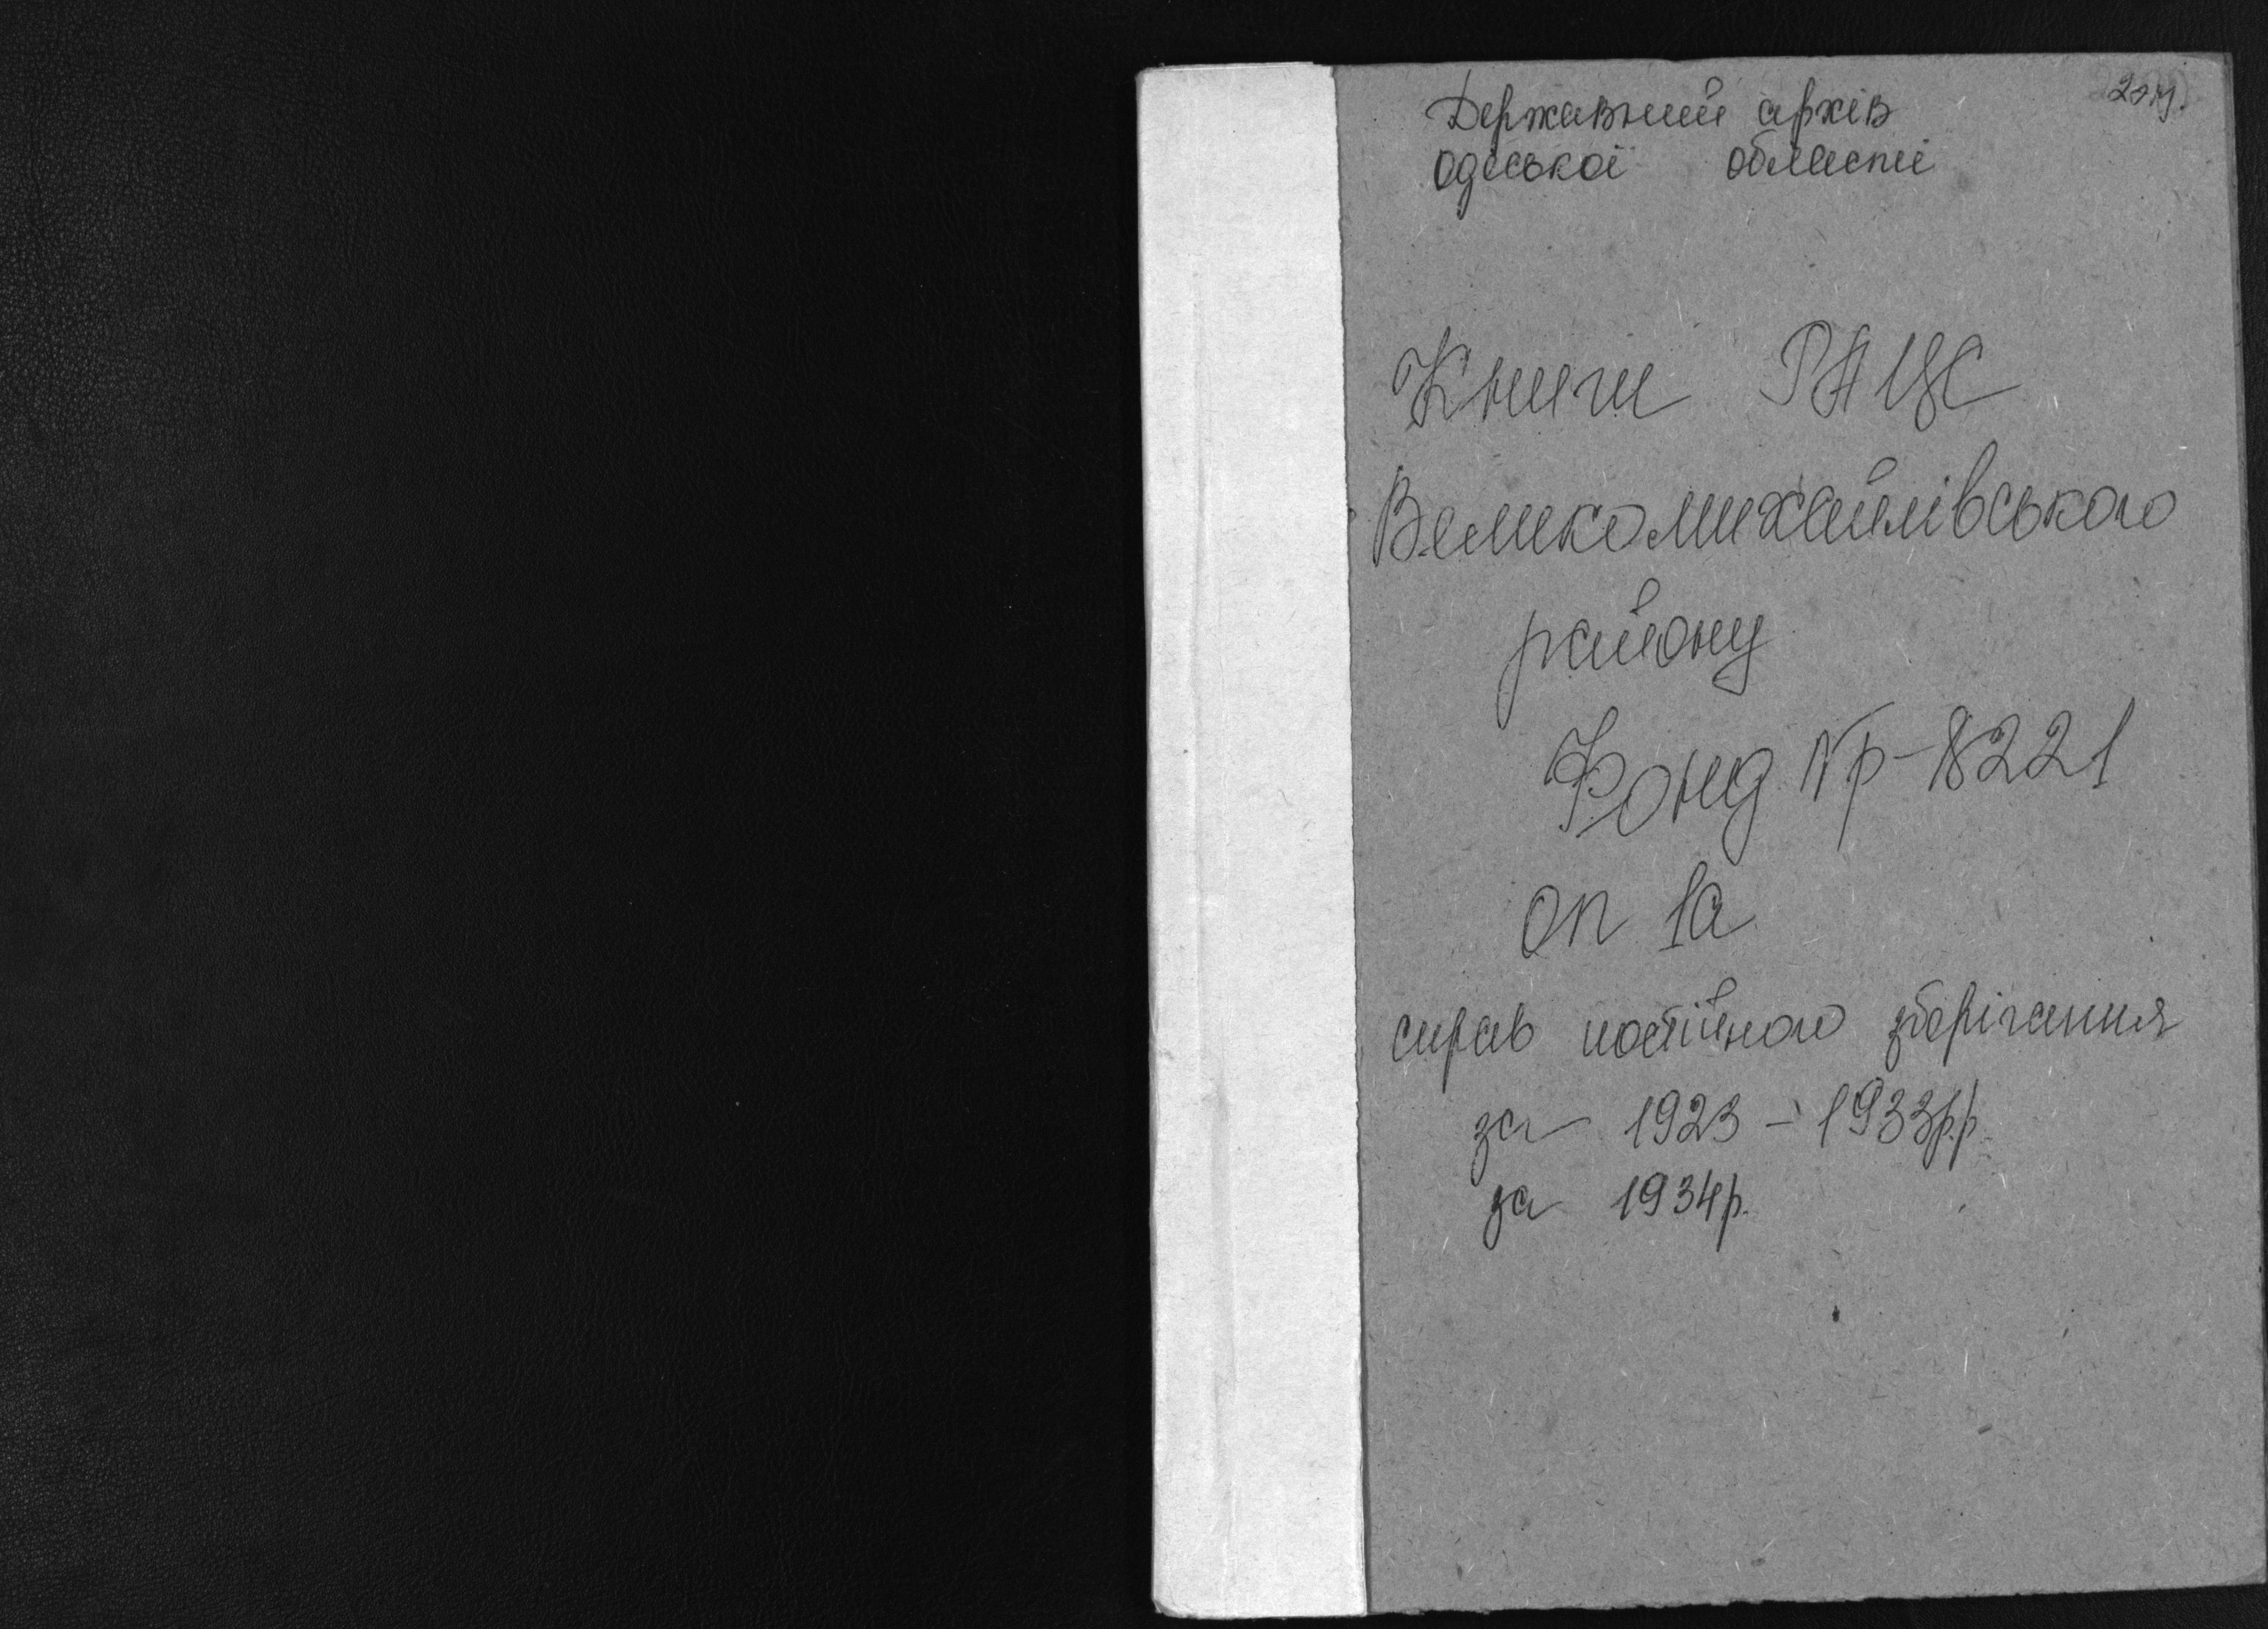 Державний архів
Одеської області
Книги РАЦС
Великомихайлівського
району
Фонд №р-8221
оп 1а
справ постійного зберігання
за 1923-1933рр.
за 1934р.